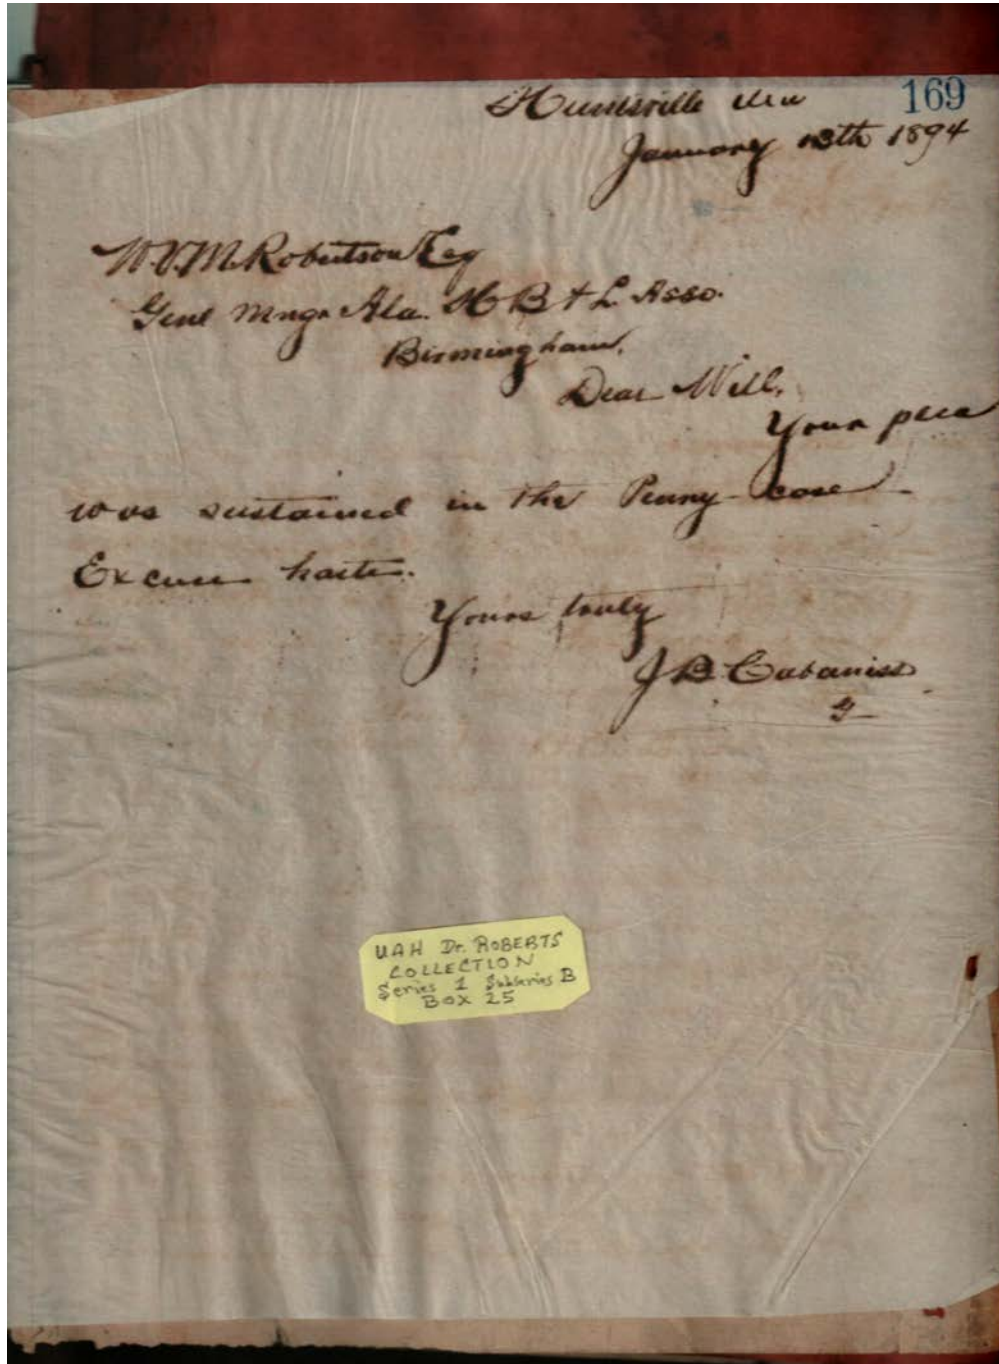 169
Huntsville Ala
January 13th 1894
W.V.M. Robertson Esq
Genl Mngr Ala. H B & L Asso.
Birmingham,
Dear Will,
Your plea
was sustained in the Penny case
Excuse haste.
Yours truly
J B Cabaniss
UAH Dr. ROBERTS
COLLECTION
Series 1 Subseries B
BOX 25